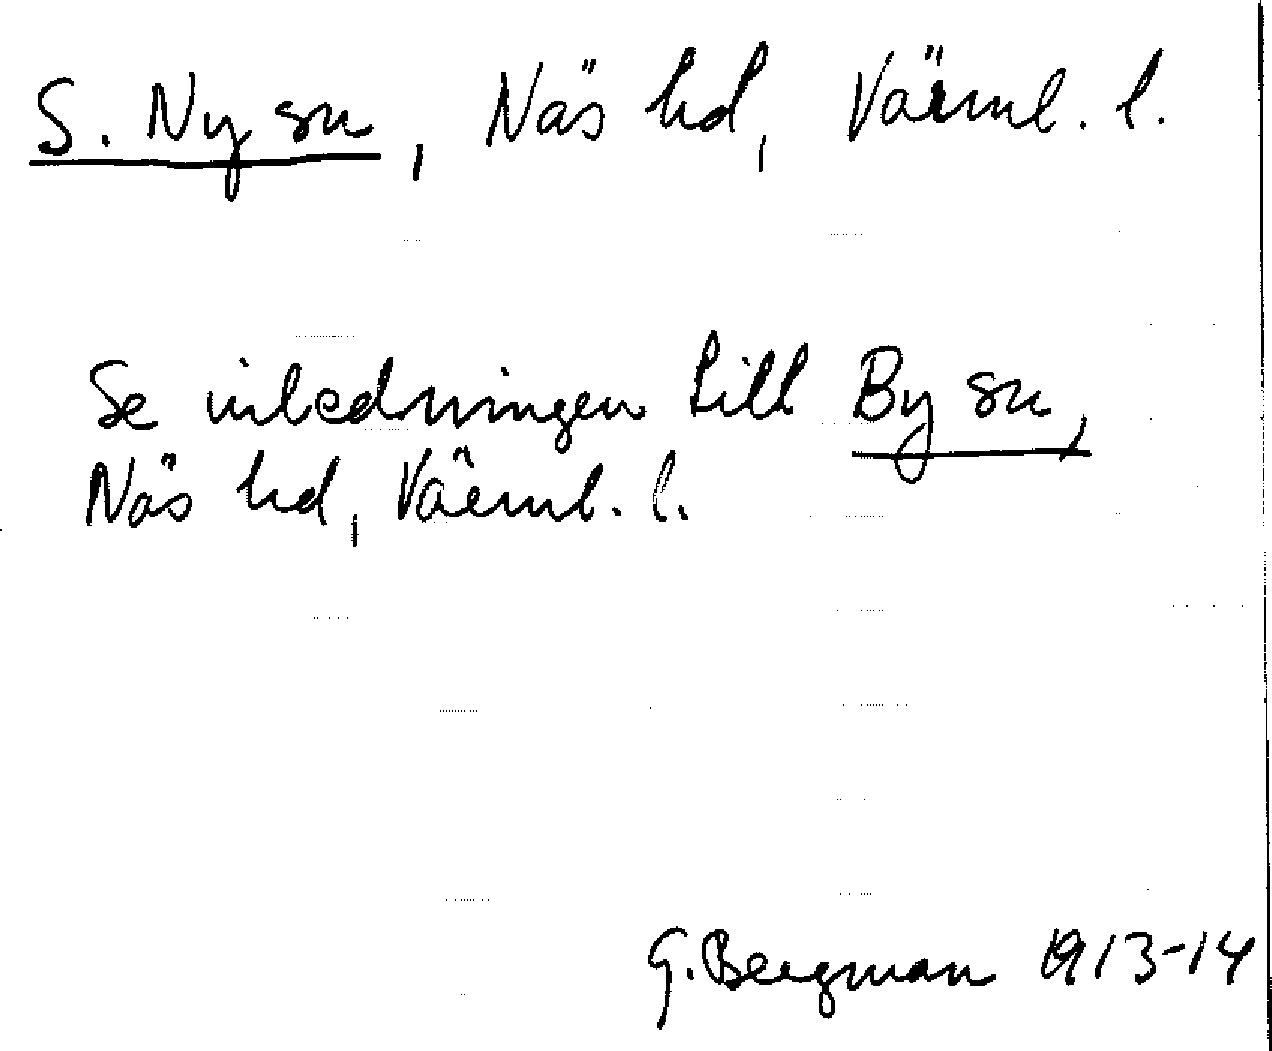 S. Ny sn, Näs hd, Värml. l.
Se inledningen till By sn,
Näs hd, Värml. l.
G. Bergman 1913-14